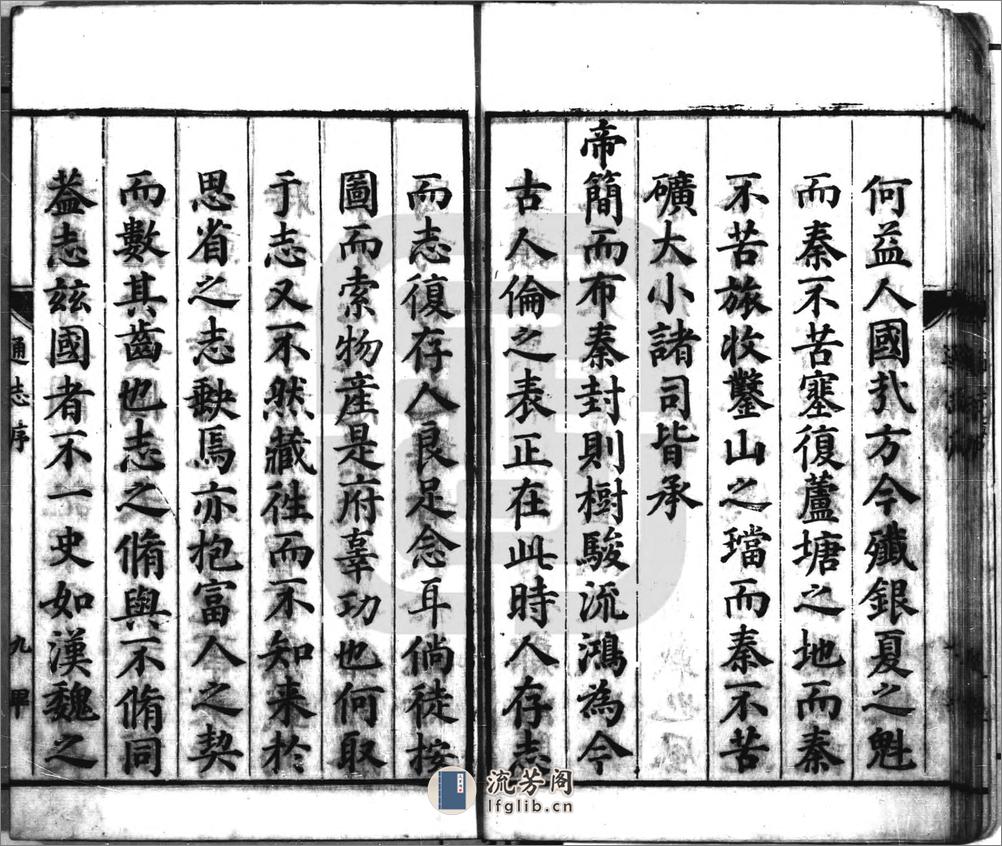 何益人國㢤方今殲銀夏之魁
而秦不苦塞復蘆塘之地而秦
不苦旅收鑿山之璫而秦不苦
礦大小諸司皆承
帝簡而布秦封則樹駿流鴻為今
古人倫之表正在此時人存志
而志復存人良足念耳倘徒按
圖而索物產是府辜功也何取
于志又不然藏徃而不知来於
思省之志缺焉亦抱富人之契
而數其齒也志之脩與不脩同
葢志兹國者不一史如漢魏之
通志序
九
甲
流芳阁
lfglib.cn